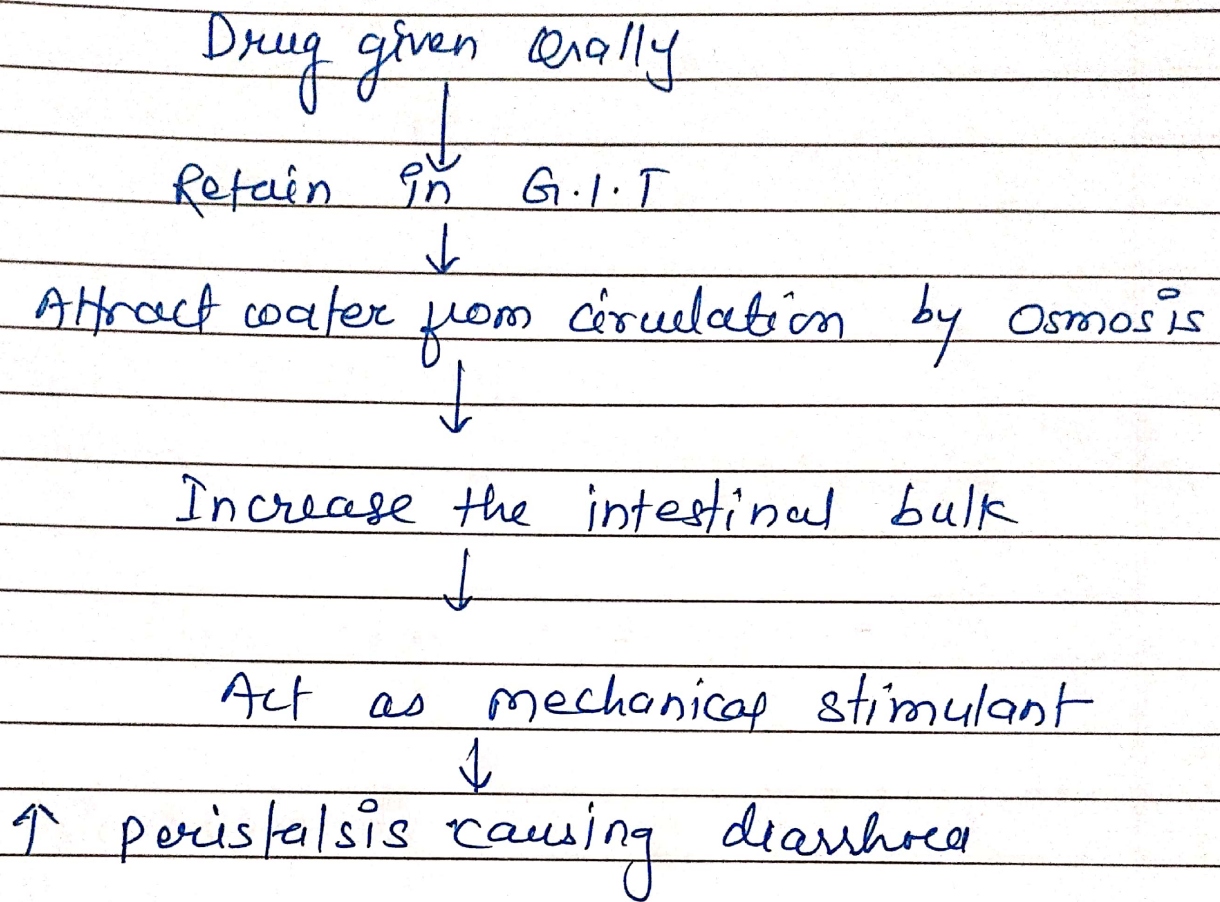 Drug given orally
↓
Retain in G.I.T
↓
Attract water from circulation by osmosis
↓
Increase the intestinal bulk
↓
Act as mechanical stimulant
↓
↑ peristalsis causing diarrhoea